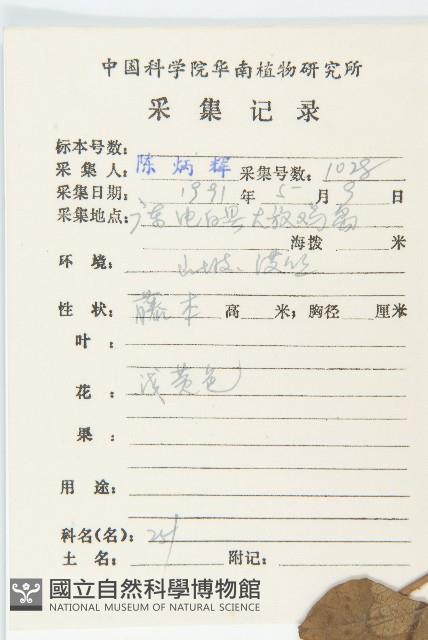 中国科学院华南植物研究所
采集记录
标本号数：
采集人：陈炳辉 采集号数：1028
采集日期：1991年5月9日
采集地点：广东电白县大放鸡岛
海拨 米
环境：山坡、
性状：藤本 高 米；胸径 厘米
叶：
花：浅黄色
果：
用途：
科名(名)：251
土名： 附记：
國立自然科學博物館
NATIONAL MUSEUM OF NATURAL SCIENCE